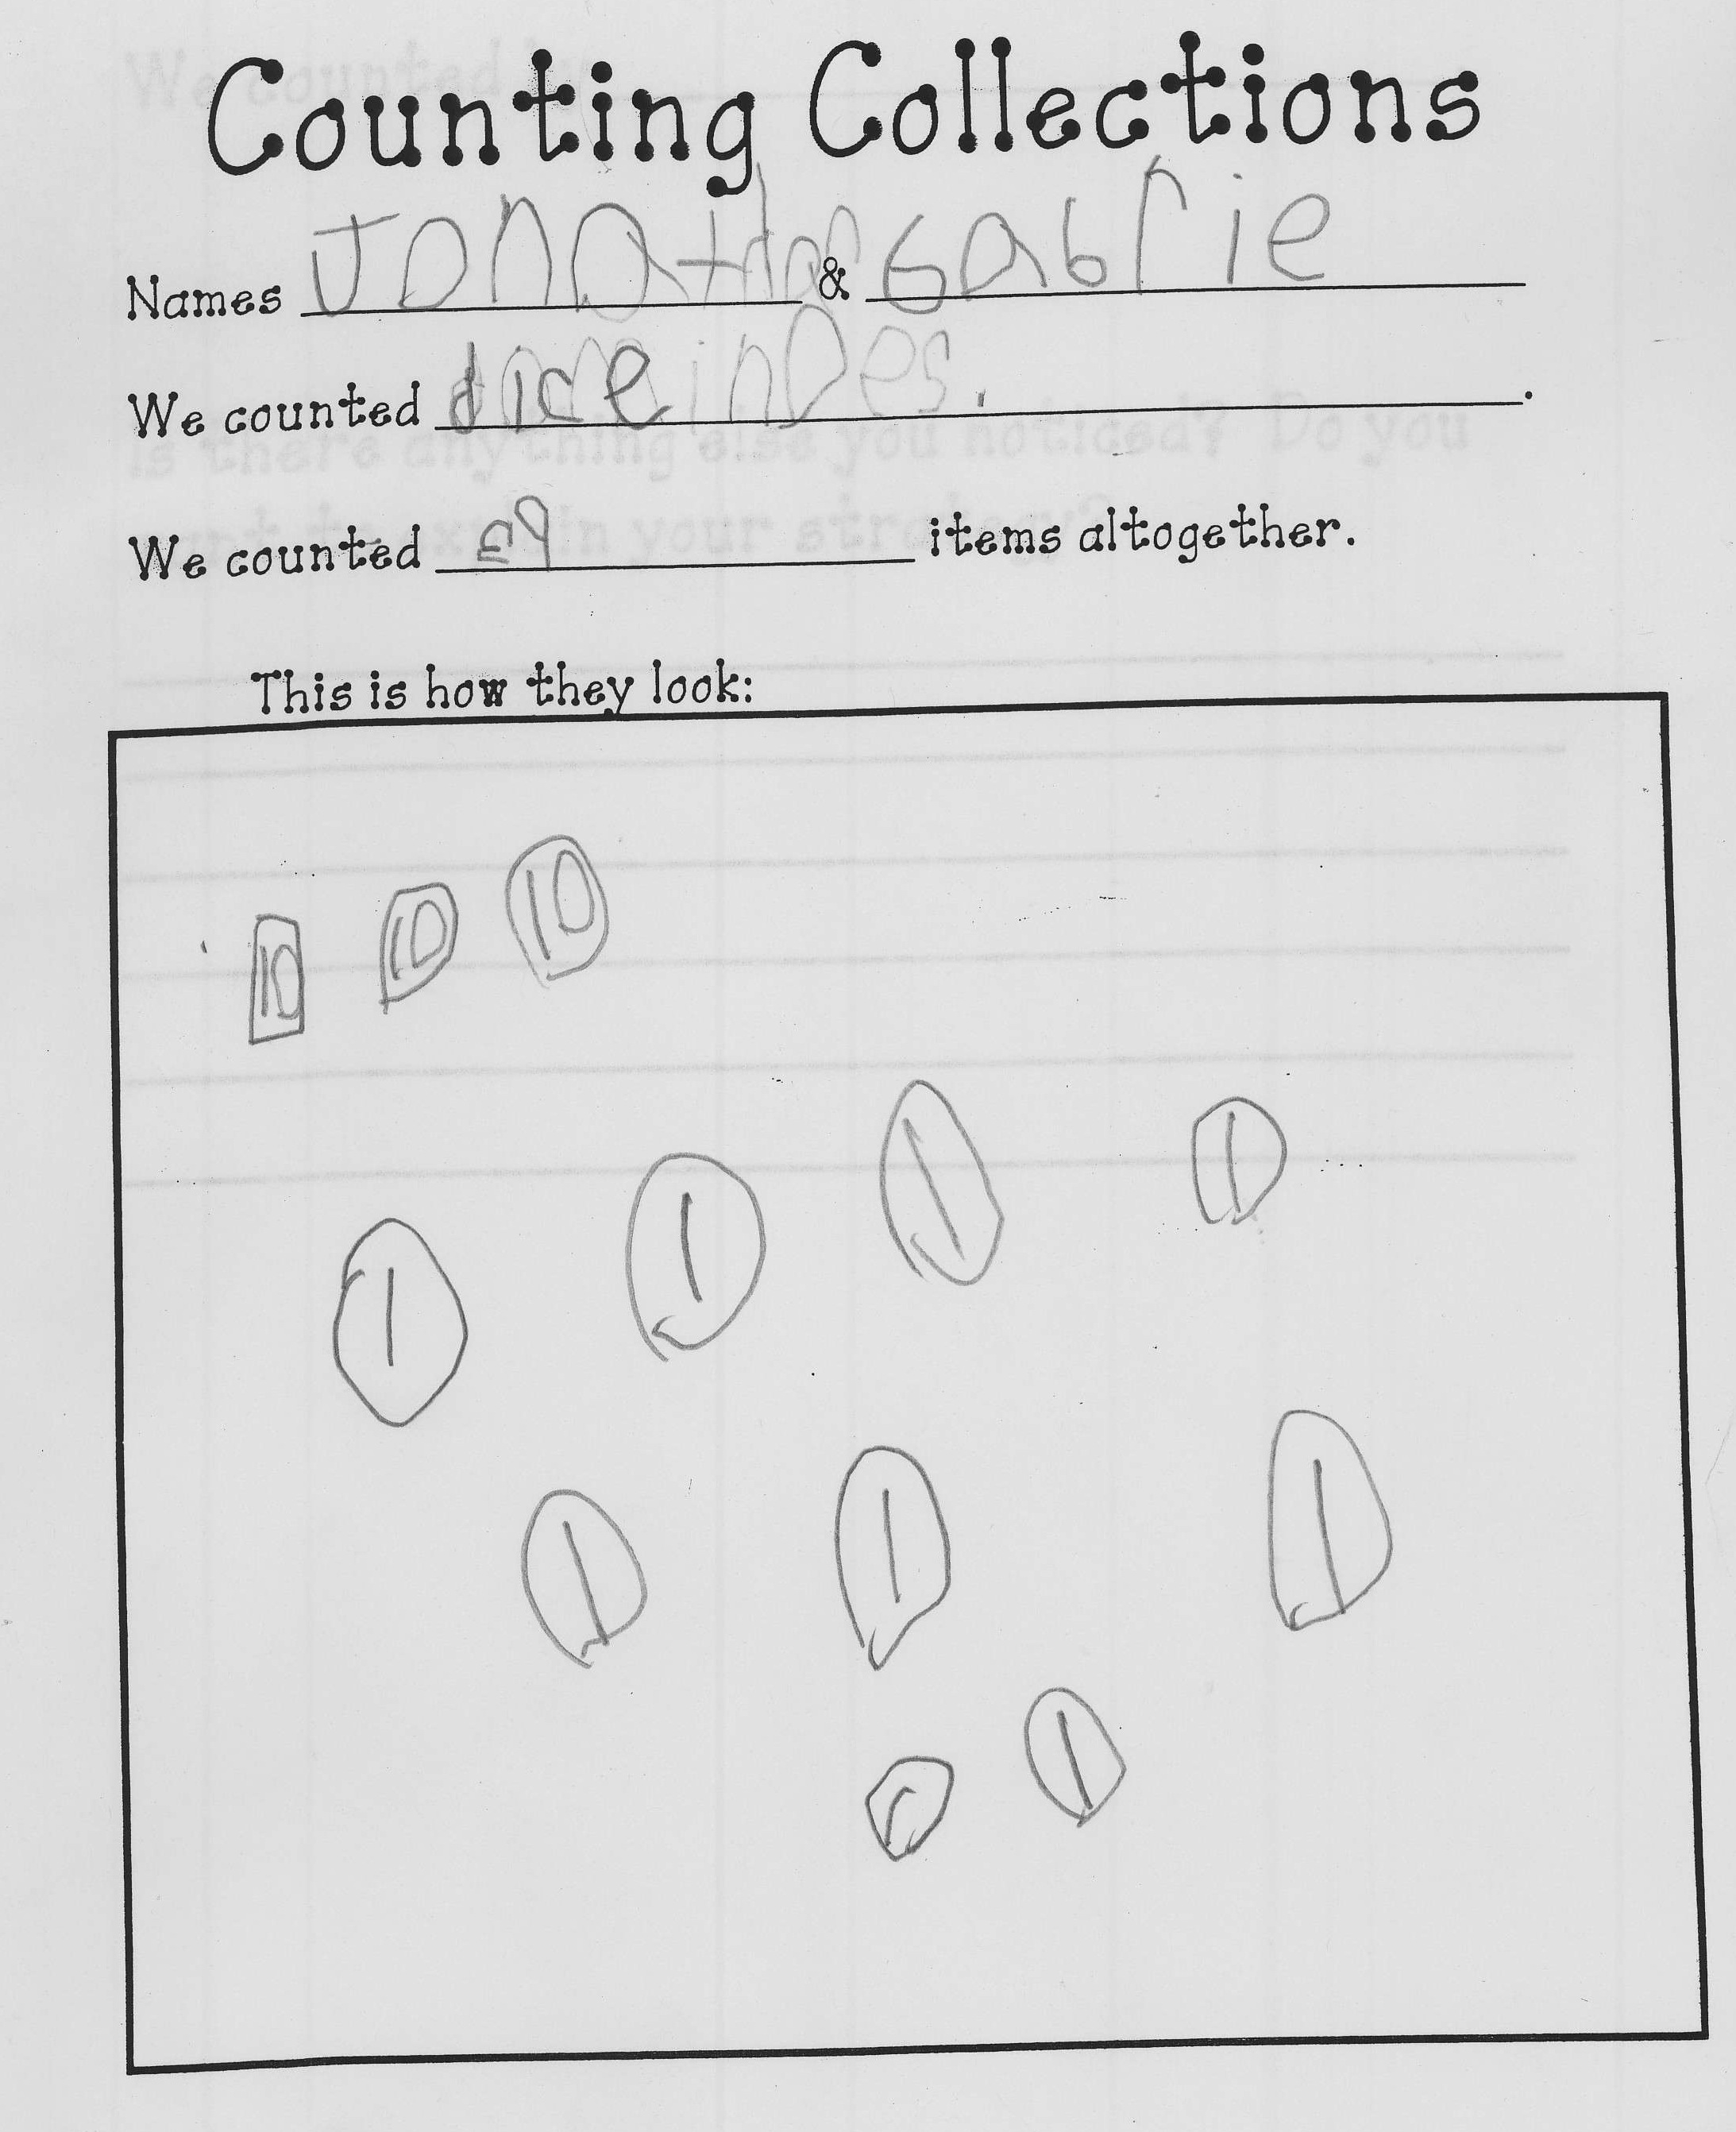 Counting Collections
Names Jonathan & Gabrie
We counted dice .
We counted 39 items altogether.
This is how they look:
10 10 10
1 1 1 1
1 1 1
1 1